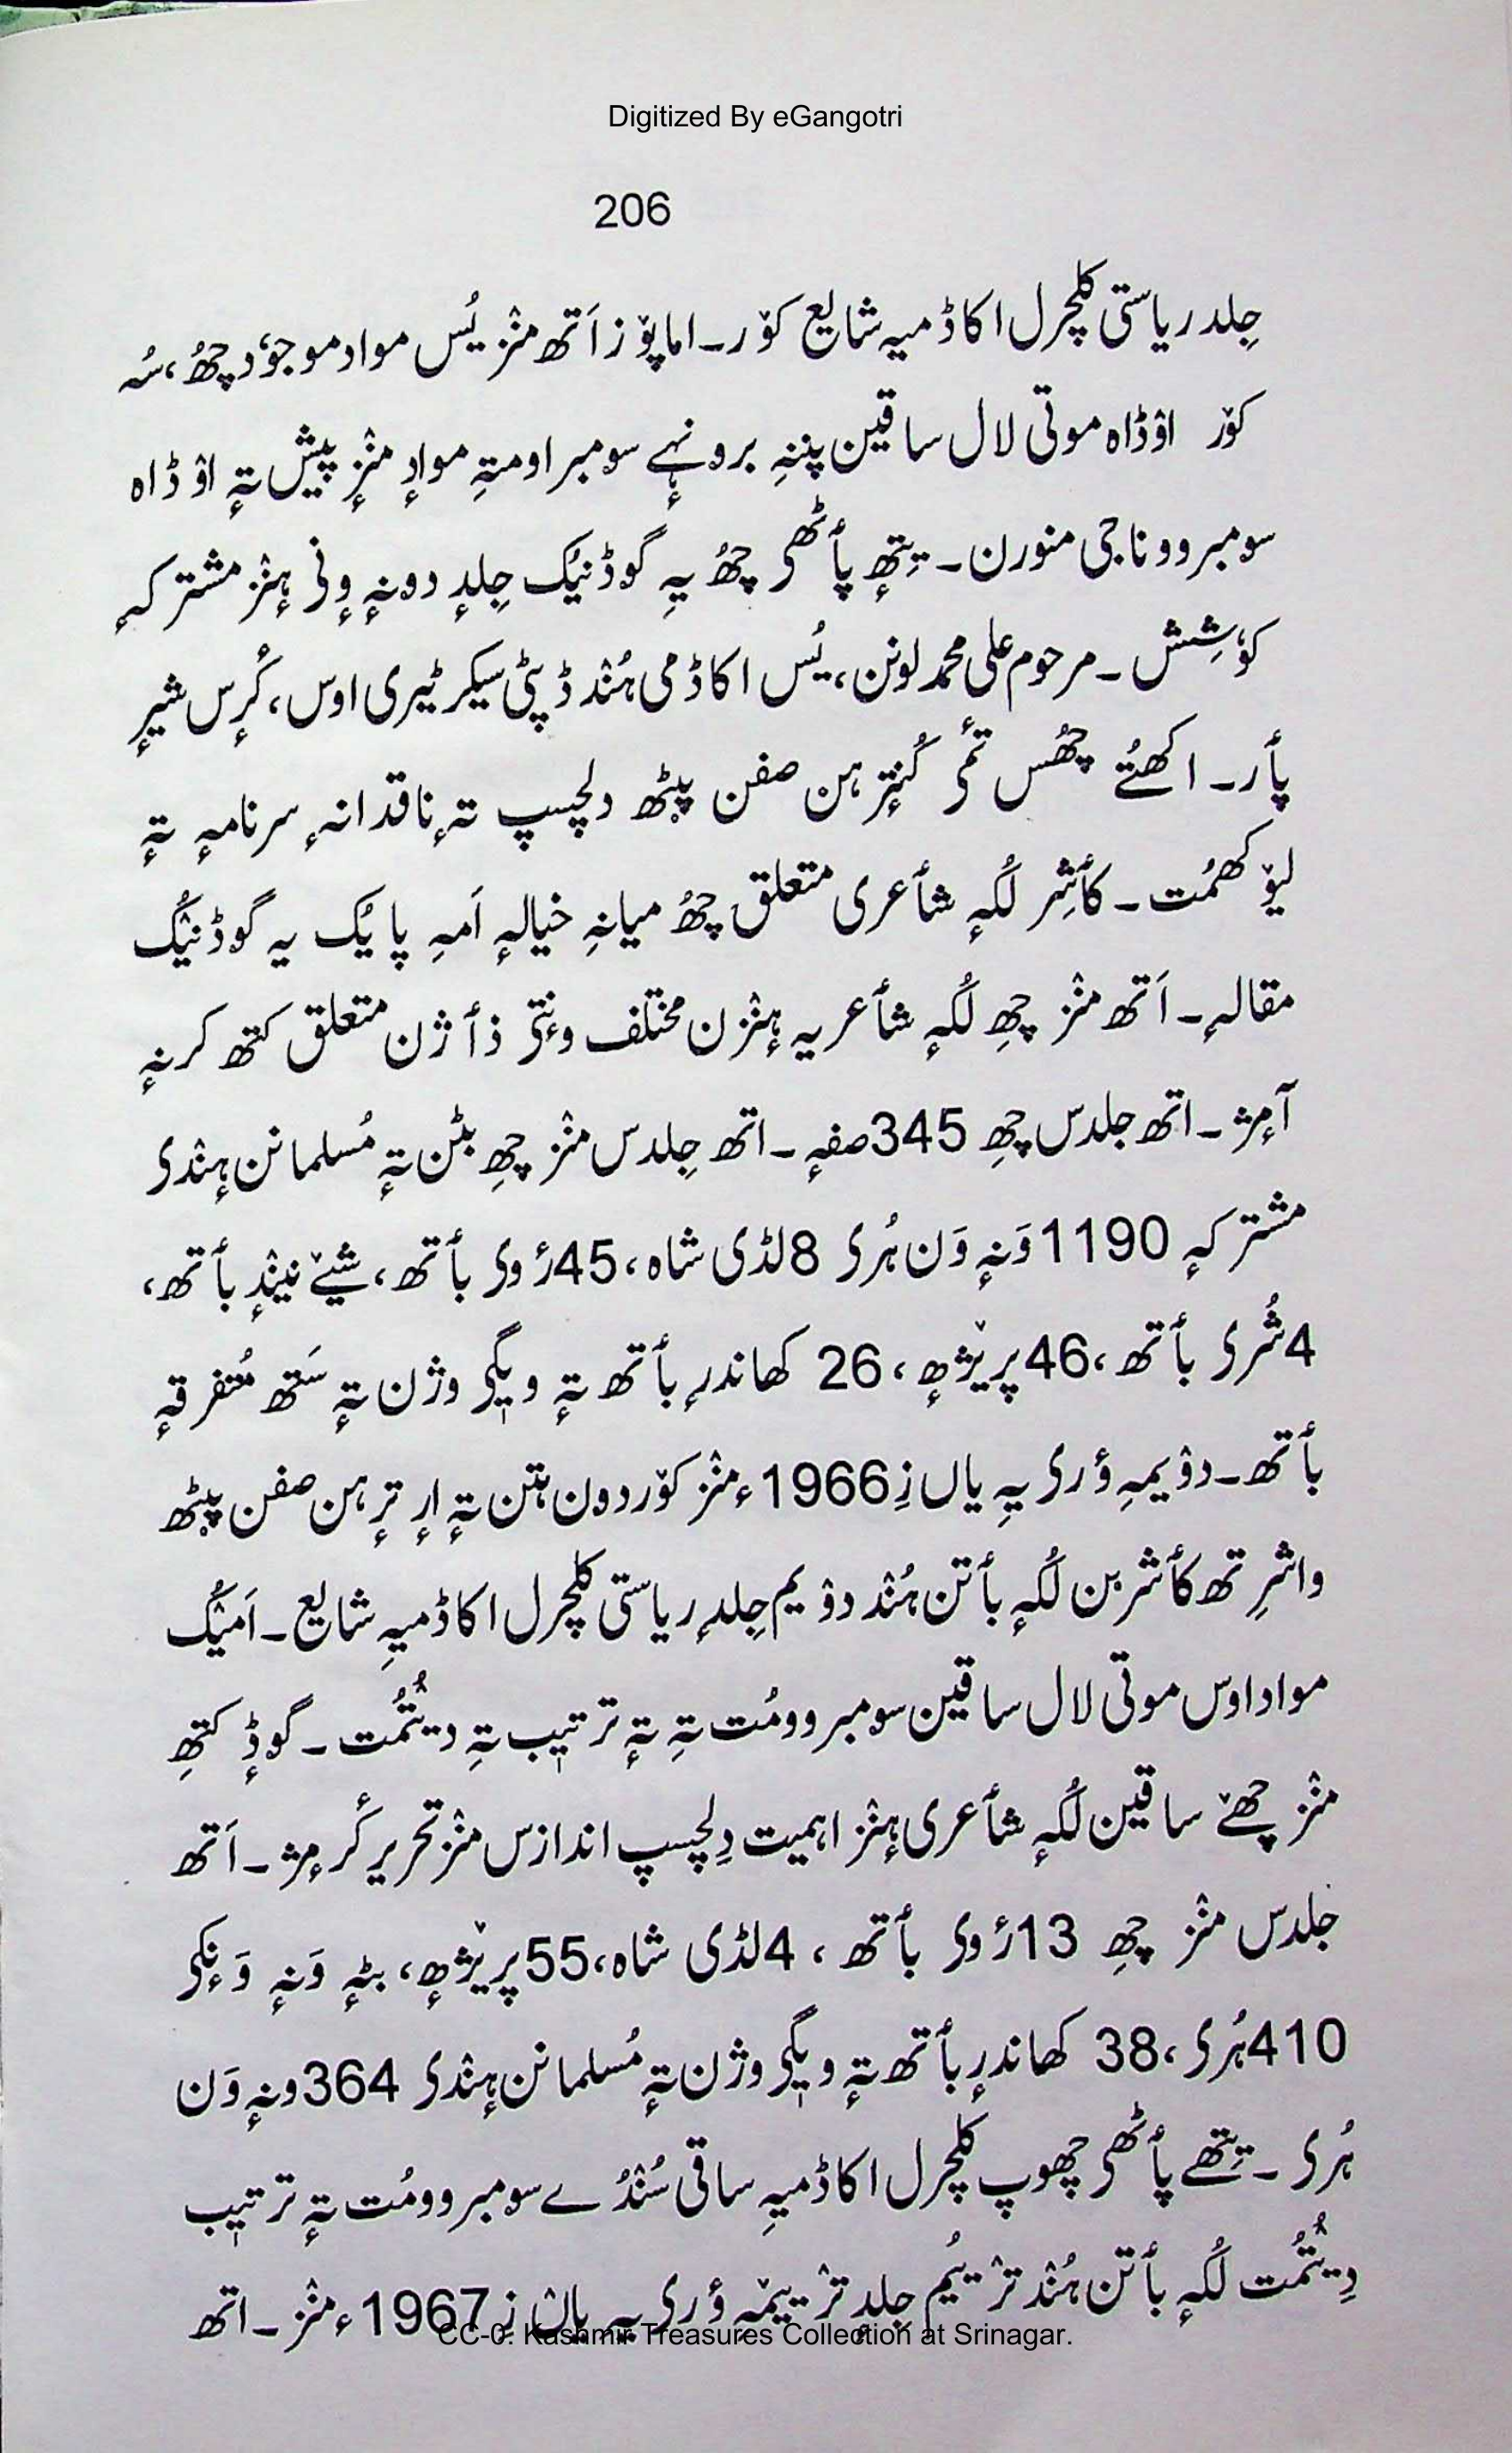 Digitized By eGangotri
206
جِلد ریاستی کلچرل اکاڈمیہ شایع کوٚر۔ اما پوٚز اَتھ منٛز یُس مواد موجوٗد چھُ، سُہ
کوٚر اوٚڈاہ موتی لال ساقین پننہِ برونٛہے سومبراومتہِ موادٕ منٛزٕ پیش تہٕ اوٚڈاہ
سومبروو ناجی منورن۔ یتھٕ پأٹھی چھُ یہِ گوڈنیُک جِلدٕ دونہٕ وٕنی ہٕنٛز مشترکہٕ
کوٗشِش۔ مرحوم علی محمد لونن، یُس اکاڈمی ہُنٛد ڈپٹی سیکرٹیری اوس، کٔرٕس شیرٕ
پأر۔ اکھتُے چھُس تٔمی کُنترٕ ہن صفن پیٚٹھ دلچسپ تہٕ ناقدانہٕ سرنامہٕ تہٕ
لیوٚکھمُت۔ کأشِر لُکہٕ شأعری متعلق چھُ میانہِ خیالہٕ اَمہِ پایُک یہ گوڈنیُک
مقالہٕ۔ اَتھ منٛز چھِ لُکہٕ شأعریہ ہٕنٛزن مختلف وٕنتی ذأژن متعلق کتھ کرنہٕ
آمٕژ۔ اتھ جلدس چھِ 345 صفہٕ۔ اتھ جِلدس منٛز چھِ بٹن تہٕ مُسلمانن ہٕنٛدی
مشترکہٕ 1190 وَنہٕ وَن ہُری 8 لڈی شاہ، 45 رٔوی بأتھ، شیےٚ نیٚنٛدٕ بأتھ،
4 شُری بأتھ، 46 پریٚژھٕ، 26 کھاندرٕ بأتھ تہٕ ویٖگی وژن تہٕ سَتھ مُتفرقہٕ
بأتھ۔ دوٚیمہِ ؤری یہِ یاں زِ 1966ء منٛز کوٚر دون ہتن تہٕ ارٕ ترٕہن صفن پیٚٹھ
واشرِتھ کأشرین لُکہٕ بأتن ہُنٛد دوٚیم جِلدٕ ریاستی کلچرل اکاڈمیہِ شایع۔ اَمیُک
مواد اوس موتی لال ساقین سومبروومُت تہِ تہٕ ترتیٖب تہِ دیُتمُت۔ گوڈٕ کتھِ
منٛز چھےٚ ساقین لُکہٕ شأعری ہٕنٛز اہمیت دِلچسپ اندازس منٛز تحریر کٔرمٕژ۔ اَتھ
جلدس منٛز چھِ 13 رٔوی بأتھ، 4 لڈی شاہ، 55 پریٚژھٕ، بٹہٕ وَنہٕ وَنٕکی
410 ہُری، 38 کھاندرٕ بأتھ تہٕ ویٖگی وژن تہٕ مُسلمانن ہٕنٛدی 364 ونہٕ وَن
ہُری۔ یتھے پأٹھی چھوپ کلچرل اکاڈمیہِ ساقی سُنٛدُے سومبروومُت تہٕ ترتیٖب
دِیُتمُت لُکہٕ بأتن ہُنٛد ترٛیٚیُم جِلدٕ ترٛیٚیمہٕ ؤری یہ یاں زِ 1967ء منٛز۔ اتھ
CC-0. Kashmir Treasures Collection at Srinagar.